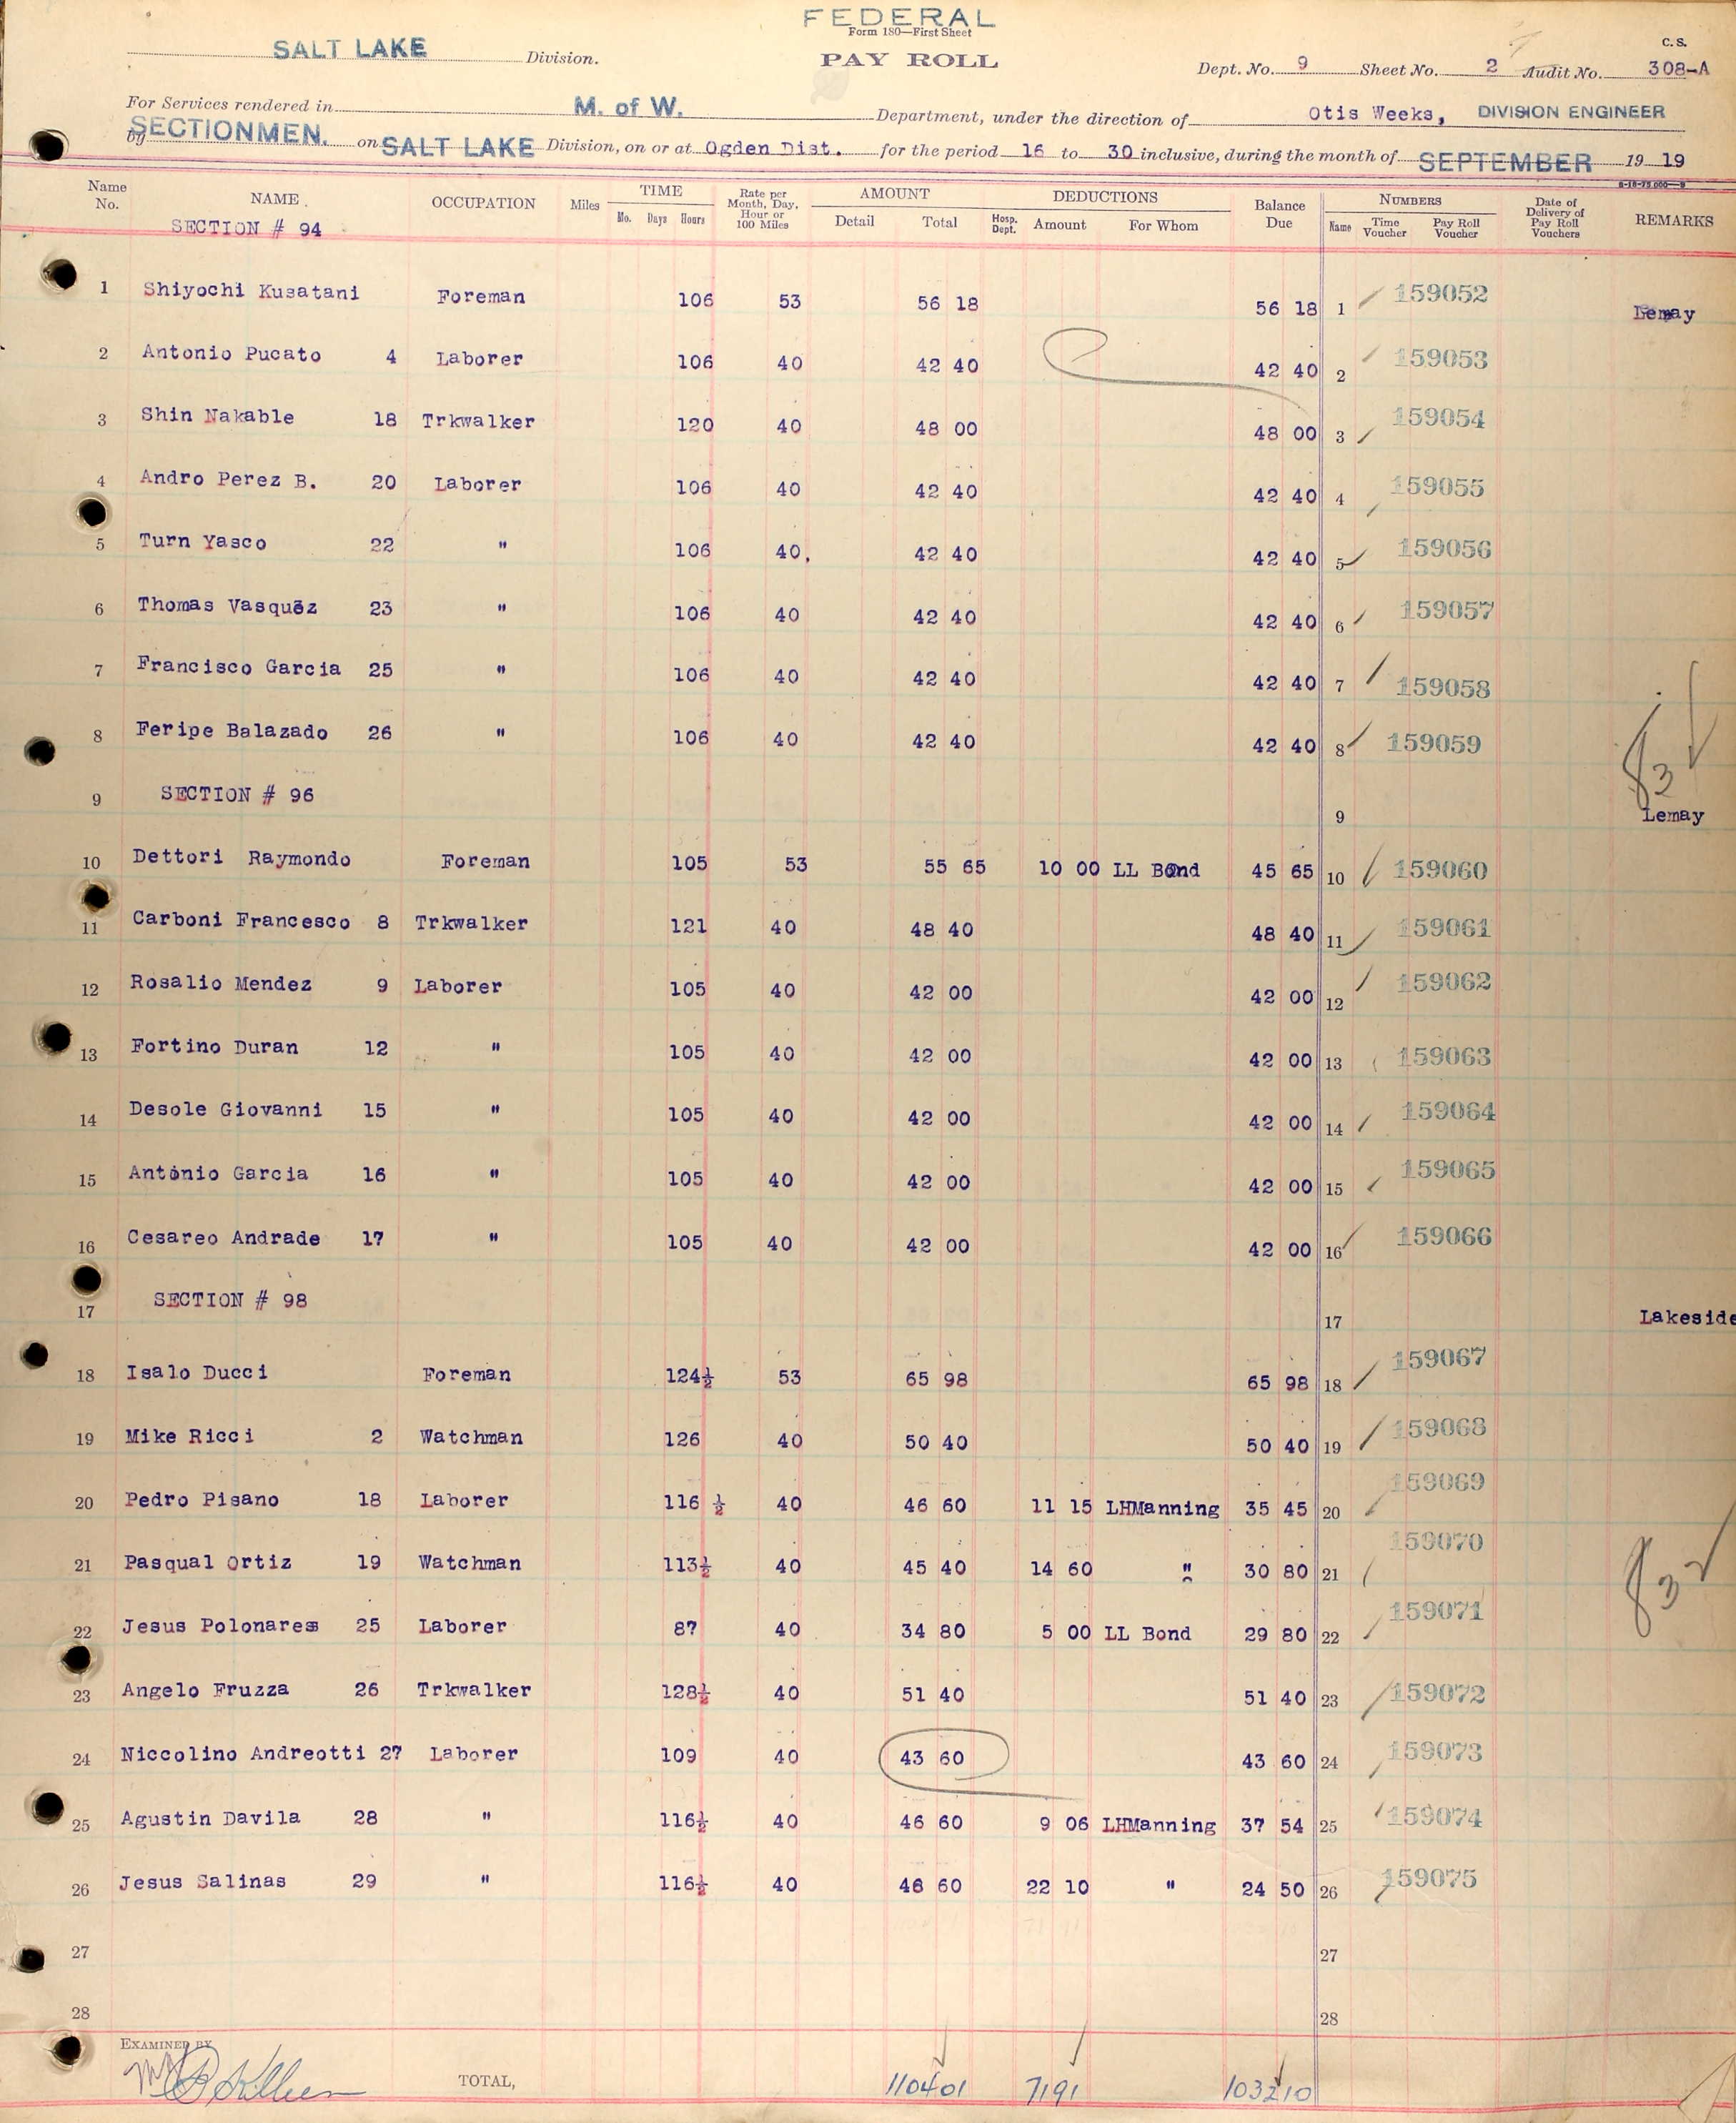 FEDERAL
Form 180—First Sheet
C. S.
SALT LAKE Division. PAY ROLL Dept. No. 9 Sheet No. 2 Audit No. 308-A
For Services rendered in M. of W. Department, under the direction of Otis Weeks, DIVISION ENGINEER
by SECTIONMEN. on SALT LAKE Division, on or at Ogden Dist. for the period 16 to 30 inclusive, during the month of SEPTEMBER 19 19
Name No. NAME OCCUPATION Miles TIME Mo. Days Hours Rate per Month, Day, Hour or 100 Miles AMOUNT Detail Total DEDUCTIONS Hosp. Dept. Amount For Whom Balance Due NUMBERS Name Time Voucher Pay Roll Voucher Date of Delivery of Pay Roll Vouchers REMARKS
SECTION # 94
1 Shiyochi Kusatani Foreman 106 53 56 18 56 18 1 159052 Lemay
2 Antonio Pucato 4 Laborer 106 40 42 40 42 40 2 159053
3 Shin Nakable 18 Trkwalker 120 40 48 00 48 00 3 159054
4 Andro Perez B. 20 Laborer 106 40 42 40 42 40 4 159055
5 Turn Yasco 22 " 106 40. 42 40 42 40 5 159056
6 Thomas Vasquez 23 " 106 40 42 40 42 40 6 159057
7 Francisco Garcia 25 " 106 40 42 40 42 40 7 159058
8 Feripe Balazado 26 " 106 40 42 40 42 40 8 159059
9 SECTION # 96 9 Lemay
10 Dettori Raymondo Foreman 105 53 55 65 10 00 LL Bond 45 65 10 159060
11 Carboni Francesco 8 Trkwalker 121 40 48 40 48 40 11 159061
12 Rosalio Mendez 9 Laborer 105 40 42 00 42 00 12 159062
13 Fortino Duran 12 " 105 40 42 00 42 00 13 159063
14 Desole Giovanni 15 " 105 40 42 00 42 00 14 159064
15 Antonio Garcia 16 " 105 40 42 00 42 00 15 159065
16 Cesareo Andrade 17 " 105 40 42 00 42 00 16 159066
17 SECTION # 98 17 Lakeside
18 Isalo Ducci Foreman 124½ 53 65 98 65 98 18 159067
19 Mike Ricci 2 Watchman 126 40 50 40 50 40 19 159068
20 Pedro Pisano 18 Laborer 116 ½ 40 46 60 11 15 LHManning 35 45 20 159069
21 Pasqual Ortiz 19 Watchman 113½ 40 45 40 14 60 " 30 80 21 159070
22 Jesus Polonares 25 Laborer 87 40 34 80 5 00 LL Bond 29 80 22 159071
23 Angelo Fruzza 26 Trkwalker 128½ 40 51 40 51 40 23 159072
24 Niccolino Andreotti 27 Laborer 109 40 43 60 43 60 24 159073
25 Agustin Davila 28 " 116½ 40 46 60 9 06 LHManning 37 54 25 159074
26 Jesus Salinas 29 " 116½ 40 46 60 22 10 " 24 50 26 159075
27 27
28 28
EXAMINED BY
TOTAL, 1104 01 71 91 1032 10